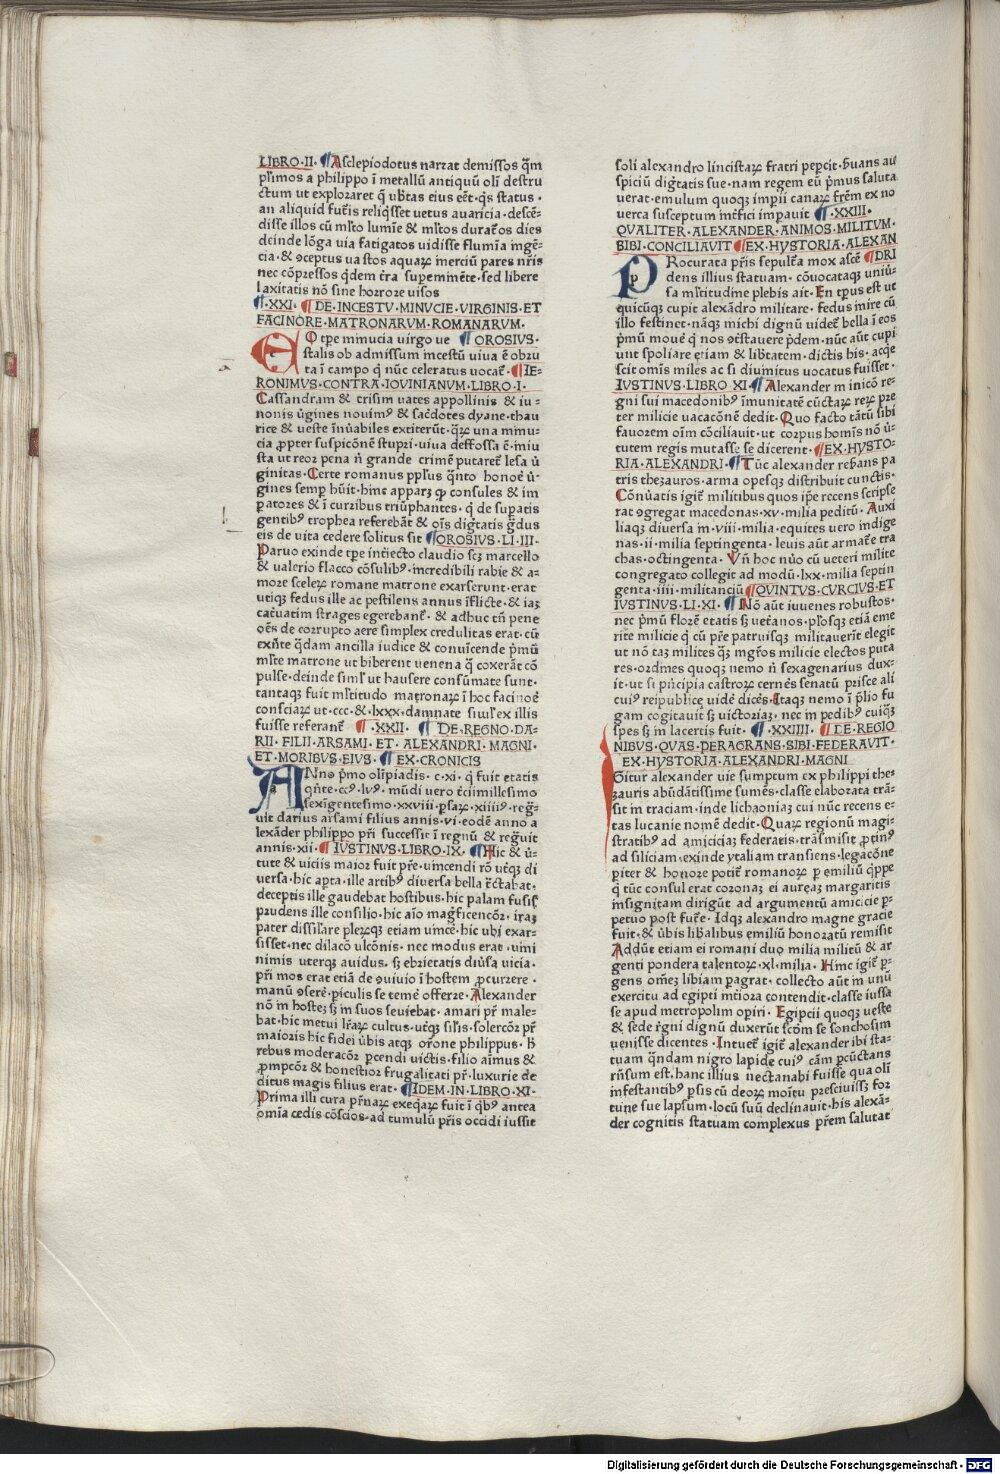 LIBRO·II· ¶Asclepiodotus narrat demissos q̄m
plrīmos a philippo ī metallū antiquū olī destru
ctum ut explozaret q̄ ub̄tas eius eēt·q̄s status·
an aliquid fut̄is reliq̄sset uetus auaricia·descē-
disse illos cū ml̄to lumīe & ml̄tos durat̄os dies
deinde lōga uia fatigatos uidisse flumīa ingē-
cia·& ꝯceptus uastos aquaꝝ inerciū pares nr̄is
nec cōpressos q̄dem t̄ra supeminēte·sed libere
laxitatis nō sine horroze uisos
¶·XXI· ¶DE·INCESTV·MINVCIE·VIRGINIS·ET
FACINORE·MATRONARVM·ROMANARVM·
EO tp̄e minucia uirgo ue ¶OROSIVS·
stalis ob admissum incestū uiua ē obru
ta ī campo q̄ nūc celeratus uocat̄·¶IE-
RONIMVS·CONTRA·IOVINIANVM·LIBRO·I·
Cassandram & crisim uates appollinis & iu-
nonis ūgines nouim⁹ & sac̄dotes dyane·thau
rice & ueste īnūabiles extiterūt·q̄ꝝ una minu-
cia ꝓpter suspicōnē stupri·uiua deffossa ē·iniu
sta ut reor pena n̄ grande crimē putaret̄ lesa ū
ginitas·Certe romanus pplus q̄nto honoē ū-
gines semp̄ hūit·hinc apparꝫ ꝙ consules & im
ꝑatores & ī curribus triūphantes·q̄ de supatis
gentib⁹ trophea referebāt & oīs dig̃tatis g̃dus
eis de uita cedere solitus sit ¶OROSIVS·LI·III·
Paruo exinde tp̄e int̄iecto claudio scꝫ marcello
& ualerio flacco cōsulib⁹·incredibili rabie & a-
moze sceleꝝ romane matrone exarserunt·erat
utiq̄ fedus ille ac pestilens annus īflicte·& iaꝫ
cat̄uatim strages egerebant̄·& adhuc tn̄ pene
oēs de corrupto aere simplex credulitas erat·cū
exn̄te q̄dam ancilla iudice & conuīcende p̄mū
ml̄te matrone ut biberent uenena q̄ coxerāt cō
pulse·deinde siml̄ ut hausere consūmate sunt·
tantaqꝫ fuit ml̄titudo matronaꝝ ī hoc facinoē
consciaꝝ ut·ccc·& lxxx·damnate siul̄ ex illis
fuisse referant̄ ¶·XXII· ¶ DE·REGNO·DA-
RII·FILII·ARSAMI·ET·ALEXANDRI·MAGNI·
ET·MORIBVS·EIVS· ¶EX·CRONICIS
ANno p̄mo olīpiadis·c·xi·q̄ fuit etatis
q̄n̄te·cc⁹·lv⁹·mūdi uero t̄ciimillesimo
sexigentesimo·xxviii·ꝑsaꝝ·xiiii⁹·reg̃-
uit darius arsami filius annis·vi·eodē anno a
lexāder philippo pr̄i successit ī regnū & reg̃uit
annis·xii·¶IVSTINVS·LIBRO·IX·¶Hic & ū-
tute & uiciis maior fuit pr̄e·uincendi rō utꝗꝫ di
uersa·hic apta·ille artib⁹ diuersa bella tr̄ctabat·
deceptis ille gaudebat hostibus·hic palam fusis
prudens ille consilio·hic aīo mag̃ficencōr·iraꝫ
pater dissilare plerꝗꝫ etiam umcē·hic ubi exar-
sisset·nec dilacō ulcōnis·nec modus erat·uini
nimis uterqꝫ auidus·sꝫ ebrietatis diūsa uicia·
pr̄i mos erat etiā de ꝯuiuio ī hostem ꝓcurrere·
manū ꝯserē·piculis se temē offerre·Alexander
nō in hostes sꝫ in suos seuiebat·amari pr̄ male-
bat·hic metui lr̄aꝝ cultus·utqꝫ sil̄is·solercōr pr̄
maioris hic fidei ūbis atqꝫ or̄one philippus·h̄
rebus moderacōr pcendi uictis·filio aīmus &
ꝓmpcōr & honestior frugalitati pr̄·luxurie de
ditus magis filius erat·¶IDEM·IN·LIBRO·XI·
Prima illi cura pr̄naꝝ exeqaꝝ fuit ī q̄b⁹ antea
omīa cedis cōscios·ad tumulū pr̄is occidi iussit
soli alexandro lincistaꝝ fratri pepcit·ẜuans au
spiciū dig̃tatis sue·nam regem eū p̄mus saluta
uerat·emulum quoqꝫ impii canaꝝ fr̄em ex no
uerca susceptum int̄fici impauit ¶·XXIII·
QVALITER·ALEXANDER·ANIMOS·MILITVM·
SIBI·CONCILIAVIT ¶EX·HYSTORIA·ALEXAN
PRocurata pr̄is sepult̄a mox ascē ¶DRI
dens illius statuam·cōuocataqꝫ uniū-
sa ml̄titudine plebis ait·En tp̄us est ut
quicūqꝫ cupit alexādro militare·fedus inire cū
illo festinet·nāqꝫ michi dignū uidet̄ bella ī eos
p̄mū mouē q̄ nos ꝯtstauere p̄dem·nūc aūt cupi
unt spoliare etiam & lib̄tatem·dictis his·acqe
scit omīs miles ac si diuinitus uocatus fuisset·
IVSTINVS·LIBRO XI·¶Alexander m inicō re-
gni sui macedonib⁹ īmunitatē cūctaꝝ reꝝ pre
ter milicie uacacōnē dedit·Quo facto tātū sibi
fauorem oīm cōciliauit·ut corpus homīs nō ū-
tutem regis mutasse se dicerent·¶EX·HYSTO-
RIA·ALEXANDRI·¶Tūc alexander rēbans pa
tris thezauros·arma opesqꝫ distribuit cunctis·
Cōnūatis igit̄ militibus quos ip̄e recens scripse
rat ꝯgregat macedonas·xv·milia peditū·Auxi
liaqꝫ diuersa m·viii·milia·equites uero indige
nas·ii·milia septingenta·leuis aūt armat̄e tra
chas·octingenta·Vn̄ hoc nūo cū ueteri milite
congregato collegit ad modū·lxx·milia septin
genta·iiii·militanciū ¶QVINTVS·CVRCIVS·ET
IVSTINVS·LI·XI·¶Nō aūt iuuenes robustos·
nec p̄mū florē etatis sꝫ uet̄anos·pl̄osqꝫ etiā eme
rite milicie q̄ cū pr̄e patruisqꝫ militauerīt elegit
ut nō taꝫ milites q̄ꝫ mgr̄os milicie electos puta
res·ordines quoqꝫ nemo n̄ sexagenarius dux-
it·ut si p̄ncipia castroꝝ cernēs senatū prisce ali
cui⁹ reipublice uidē dicēs·Itaqꝫ nemo ī p̄lio fu
gam cogitauit sꝫ uictoriaꝫ·nec in pedib⁹ cuiq̄ꝫ
spes sꝫ in lacertis fuit·¶·XXIIII·¶DE·REGIO
NIBVS·QVAS·PERAGRANS·SIBI·FEDERAVIT·
EX·HYSTORIA·ALEXANDRI·MAGNI
IGitur alexander uie sumptum ex philippi the-
zauris abūdātissime sumēs·classe elaborata trā-
sit in traciam·inde lichaoniaꝫ cui nūc recens e-
tas lucanie nomē dedit·Quaꝝ regionū magi-
stratib⁹ ad amiciciaꝫ federatis·trāsmisit ꝓtin⁹
ad siliciam·exinde ytaliam transiens·legacōne
piter & honore potit̄ romanoꝝ p emiliū q̄ppe
q̄ tūc consul erat coronaꝫ ei aureaꝫ margaritis
insignitam dirigūt ad argumentū amicicie p-
petuo post fut̄e·Idqꝫ alexandro magne gracie
fuit·& ūbis lib̄alibus emiliū honoratū remisit
Addūt etiam ei romani duo milia militū & ar
genti pondera talentoꝝ·xl·milia·Hinc igit̄ p-
gens om̄eꝫ libiam pagrat·collecto aūt in unū
exercitu ad egipti int̄iora contendit·classe iussa
se apud metropolim opiri·Egipcii quoqꝫ ueste
& sede r̄gni dignū duxerūt scōm se sonchosim
uenisse dicentes·Intuet̄ igit̄ alexander ibi sta-
tuam q̄ndam nigro lapide cui⁹ cām pcūctans
rn̄sum est·hanc illius nectanabi fuisse qua olī
infestantib⁹ psis cū deoꝝ monitu presciuissꝫ for
tune sue lapsum·locū suū declinauit·his alexā-
der cognitis statuam complexus pr̄em salutat
Digitalisierung gefördert durch die Deutsche Forschungsgemeinschaft - DFG